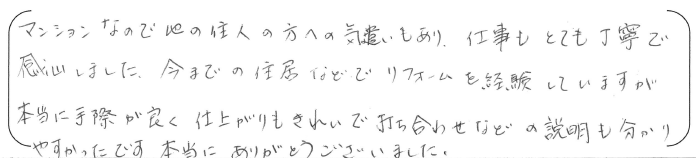 マンションなので他の住人の方への気遣いもあり、仕事もとても丁寧で
感心しました。今までの住居などでリフォームを経験していますが
本当に手際が良く仕上がりもきれいで打ち合わせなどの説明も分かり
やすかったです 本当にありがとうございました。